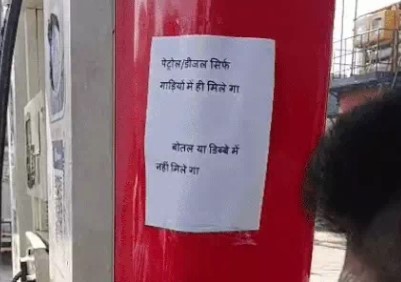 पेट्रोल/डीजल सिर्फ
गाड़ियों में ही मिले गा
बोतल या डिब्बे में
नही मिले गा